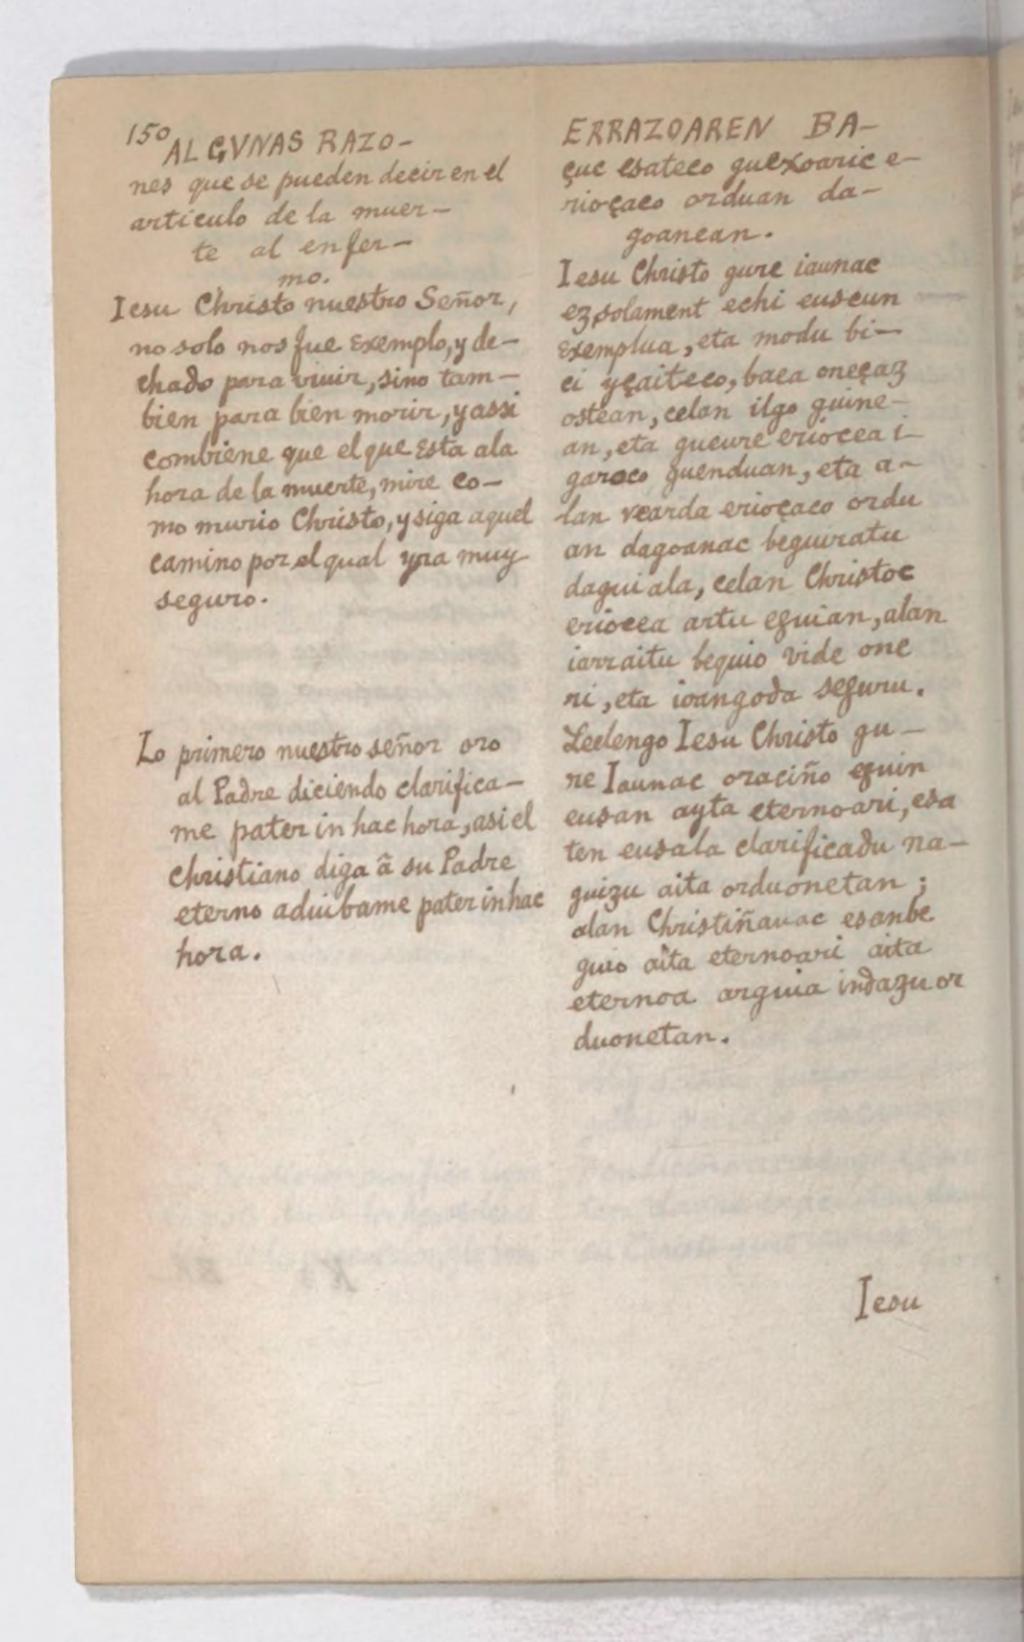 150
ALGVNAS RAZO-
nes que se pueden decir en el
articulo de la muer-
te al enfer-
mo.
Iesu Christo nuestro Señor,
no solo nos fue Exemplo, y de-
chado para viuir, sino tam-
bien para bien morir, y assi
combiene que el que Esta ala
hora de la muerte, mire co-
mo murio Christo, y siga aquel
camino por el qual yra muy
seguro.
Lo primero nuestro señor oro
al Padre diciendo clarifica-
me pater in hac hora, asi el
Christiano diga â su Padre
eterno aduibame pater in hac
hora.
ERRAZOAREN BA-
çuc esateco guexoaric e-
rioçaco orduan da-
goanean.
Iesu Christo gure iaunac
ez solament echi euscun
Exemplua, eta modu bi-
ci yçaiteco, baea oneçaz
ostean, celan ilgo guine-
an, eta gueure eriocea i-
garoco guenduan, eta a-
lan vearda erioçaco ordu
an dagoanac beguiratu
dagui ala, celan Christoc
eriocea artu eguian, alan
iarraitu bequio vide one
ri, eta ioangoda seguru.
Leelengo Iesu Christo gu-
re Iaunac oraciño eguin
eusan ayta eternoari, esa
ten eusala clarificadu na-
guizu aita orduonetan;
alan Christiñauac esanbe
quio aita eternoari aita
eternoa arguia indazu or
duonetan.
Iesu